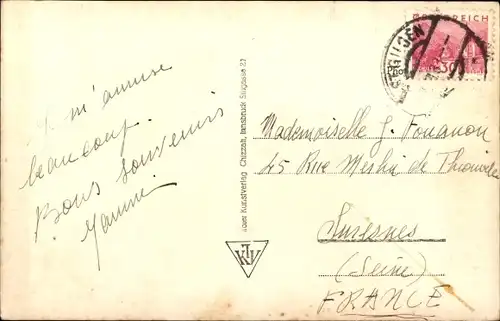 m'amuse
beaucoup.
Bons souvenirs
Kunstverlag Chizzali, Innsbruck
ÖSTERREICH
50
Mademoiselle J. Fouanon
45 Rue Merlin de Thionville
Suresnes
(Seine)
FRANCE